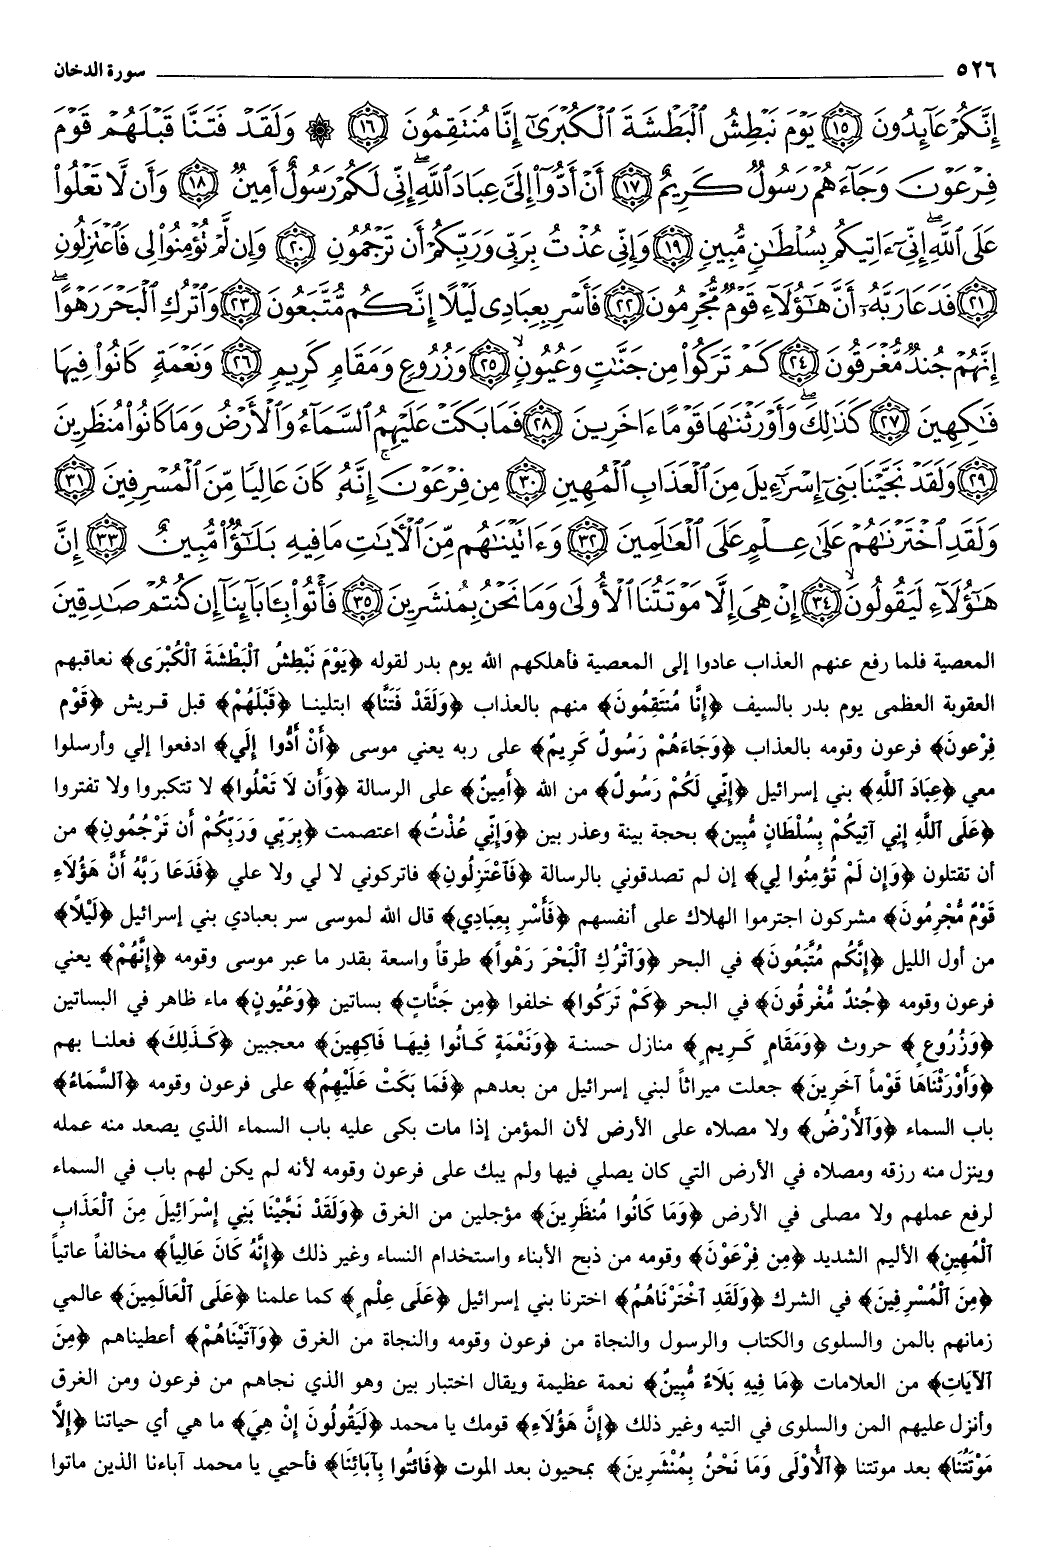 ٥٢٦ سورة الدخان
إِنَّكُمْ عَآئِدُونَ ﴿١٥﴾ يَوْمَ نَبْطِشُ ٱلْبَطْشَةَ ٱلْكُبْرَىٰٓ إِنَّا مُنتَقِمُونَ ﴿١٦﴾ ۞ وَلَقَدْ فَتَنَّا قَبْلَهُمْ قَوْمَ
فِرْعَوْنَ وَجَآءَهُمْ رَسُولٌ كَرِيمٌ ﴿١٧﴾ أَنْ أَدُّوٓا۟ إِلَىَّ عِبَادَ ٱللَّهِ ۖ إِنِّى لَكُمْ رَسُولٌ أَمِينٌ ﴿١٨﴾ وَأَن لَّا تَعْلُوا۟
عَلَى ٱللَّهِ ۖ إِنِّىٓ ءَاتِيكُم بِسُلْطَـٰنٍ مُّبِينٍ ﴿١٩﴾ وَإِنِّى عُذْتُ بِرَبِّى وَرَبِّكُمْ أَن تَرْجُمُونِ ﴿٢٠﴾ وَإِن لَّمْ تُؤْمِنُوا۟ لِى فَٱعْتَزِلُونِ
﴿٢١﴾ فَدَعَا رَبَّهُۥٓ أَنَّ هَـٰٓؤُلَآءِ قَوْمٌ مُّجْرِمُونَ ﴿٢٢﴾ فَأَسْرِ بِعِبَادِى لَيْلًا إِنَّكُم مُّتَّبَعُونَ ﴿٢٣﴾ وَٱتْرُكِ ٱلْبَحْرَ رَهْوًا ۖ
إِنَّهُمْ جُندٌ مُّغْرَقُونَ ﴿٢٤﴾ كَمْ تَرَكُوا۟ مِن جَنَّـٰتٍ وَعُيُونٍ ﴿٢٥﴾ وَزُرُوعٍ وَمَقَامٍ كَرِيمٍ ﴿٢٦﴾ وَنَعْمَةٍ كَانُوا۟ فِيهَا
فَـٰكِهِينَ ﴿٢٧﴾ كَذَٰلِكَ ۖ وَأَوْرَثْنَـٰهَا قَوْمًا ءَاخَرِينَ ﴿٢٨﴾ فَمَا بَكَتْ عَلَيْهِمُ ٱلسَّمَآءُ وَٱلْأَرْضُ وَمَا كَانُوا۟ مُنظَرِينَ
﴿٢٩﴾ وَلَقَدْ نَجَّيْنَا بَنِىٓ إِسْرَٰٓءِيلَ مِنَ ٱلْعَذَابِ ٱلْمُهِينِ ﴿٣٠﴾ مِن فِرْعَوْنَ ۚ إِنَّهُۥ كَانَ عَالِيًا مِّنَ ٱلْمُسْرِفِينَ ﴿٣١﴾
وَلَقَدِ ٱخْتَرْنَـٰهُمْ عَلَىٰ عِلْمٍ عَلَى ٱلْعَـٰلَمِينَ ﴿٣٢﴾ وَءَاتَيْنَـٰهُم مِّنَ ٱلْـَٔايَـٰتِ مَا فِيهِ بَلَـٰٓؤٌا۟ مُّبِينٌ ﴿٣٣﴾ إِنَّ
هَـٰٓؤُلَآءِ لَيَقُولُونَ ﴿٣٤﴾ إِنْ هِىَ إِلَّا مَوْتَتُنَا ٱلْأُولَىٰ وَمَا نَحْنُ بِمُنشَرِينَ ﴿٣٥﴾ فَأْتُوا۟ بِـَٔابَآئِنَآ إِن كُنتُمْ صَـٰدِقِينَ
المعصية فلما رفع عنهم العذاب عادوا إلى المعصية فأهلكهم الله يوم بدر لقوله ﴿يَوْمَ نَبْطِشُ ٱلْبَطْشَةَ ٱلْكُبْرَى﴾ نعاقبهم
العقوبة العظمى يوم بدر بالسيف ﴿إِنَّا مُنتَقِمُونَ﴾ منهم بالعذاب ﴿وَلَقَدْ فَتَنَّا﴾ ابتلينا ﴿قَبْلَهُمْ﴾ قبل قريش ﴿قَوْمَ
فِرْعونَ﴾ فرعون وقومه بالعذاب ﴿وَجَاءَهُمْ رَسُولٌ كَرِيمٌ﴾ على ربه يعني موسى ﴿أَنْ أَدُّوا إِلَي﴾ ادفعوا إلي وأرسلوا
معي ﴿عِبَادَ ٱللَّهِ﴾ بني إسرائيل ﴿إِنِّي لَكُمْ رَسُولٌ﴾ من الله ﴿أَمِينٌ﴾ على الرسالة ﴿وَأَن لَا تَعْلُوا﴾ لا تتكبروا ولا تفتروا
﴿عَلَى ٱللَّهِ إِنِي آتِيكُمْ بِسُلْطَانٍ مُّبِين﴾ بحجة بينة وعذر بين ﴿وَإِنِّي عُذْتُ﴾ اعتصمت ﴿بِرَبِّي وَرَبِّكُمْ أَن تَرْجُمُونِ﴾ من
أن تقتلون ﴿وَإِن لَمْ تُؤْمِنُوا لِي﴾ إن لم تصدقوني بالرسالة ﴿فَٱعْتَزِلُونِ﴾ فاتركوني لا لي ولا علي ﴿فَدَعَا رَبَّهُ أَنَّ هَؤُلاَءِ
قَوْمٌ مُّجْرِمُونَ﴾ مشركون اجترموا الهلاك على أنفسهم ﴿فَأَسْرِ بِعِبَادِي﴾ قال الله لموسى سر بعبادي بني إسرائيل ﴿لَيْلًا﴾
من أول الليل ﴿إِنَّكُم مُتَّبَعُونَ﴾ في البحر ﴿وَٱتْرُكِ ٱلْبَحْرَ رَهْواً﴾ طرقاً واسعة بقدر ما عبر موسى وقومه ﴿إِنَّهُمْ﴾ يعني
فرعون وقومه ﴿جُندٌ مُّغْرَقُونَ﴾ في البحر ﴿كَمْ تَرَكُوا﴾ خلفوا ﴿مِن جَنَّاتٍ﴾ بساتين ﴿وَعُيُونٍ﴾ ماء ظاهر في البساتين
﴿وَزُرُوعٍ﴾ حروث ﴿وَمَقَامٍ كَرِيمٍ﴾ منازل حسنة ﴿وَنَعْمَةٍ كَانُوا فِيهَا فَاكِهِينَ﴾ معجبين ﴿كَذَلِكَ﴾ فعلنا بهم
﴿وَأَوْرَثْنَاهَا قَوْماً آخَرِينَ﴾ جعلت ميراثاً لبني إسرائيل من بعدهم ﴿فَمَا بَكَتْ عَلَيْهِمُ﴾ على فرعون وقومه ﴿ٱلسَّمَاءُ﴾
باب السماء ﴿وَٱلأَرْضُ﴾ ولا مصلاه على الأرض لأن المؤمن إذا مات بكى عليه باب السماء الذي يصعد منه عمله
وينزل منه رزقه ومصلاه في الأرض التي كان يصلي فيها ولم يبك على فرعون وقومه لأنه لم يكن لهم باب في السماء
لرفع عملهم ولا مصلى في الأرض ﴿وَمَا كَانُوا مُنظَرِينَ﴾ مؤجلين من الغرق ﴿وَلَقَدْ نَجَّيْنَا بَنِي إِسْرَائِيلَ مِنَ ٱلْعَذَابِ
ٱلْمُهِينِ﴾ الأليم الشديد ﴿مِن فِرْعَوْنَ﴾ وقومه من ذبح الأبناء واستخدام النساء وغير ذلك ﴿إِنَّهُ كَانَ عَالِياً﴾ مخالفاً عاتياً
﴿مِنَ ٱلْمُسْرِفِينَ﴾ في الشرك ﴿وَلَقَدِ ٱخْتَرْنَاهُمْ﴾ اخترنا بني إسرائيل ﴿عَلَى عِلْمٍ﴾ كما علمنا ﴿عَلَى ٱلْعَالَمِينَ﴾ عالمي
زمانهم بالمن والسلوى والكتاب والرسول والنجاة من فرعون وقومه والنجاة من الغرق ﴿وَآتَيْنَاهُمْ﴾ أعطيناهم ﴿مِنَ
ٱلآيَاتِ﴾ من العلامات ﴿مَا فِيهِ بَلَاءٌ مُّبِينٌ﴾ نعمة عظيمة ويقال اختبار بين وهو الذي نجاهم من فرعون ومن الغرق
وأنزل عليهم المن والسلوى في التيه وغير ذلك ﴿إِنَّ هَؤُلَاءِ﴾ قومك يا محمد ﴿لَيَقُولُونَ إِنْ هِيَ﴾ ما هي أي حياتنا ﴿إِلاَّ
مَوْتَتُنَا﴾ بعد موتتنا ﴿ٱلأُولَى وَمَا نَحْنُ بِمُنْشَرِينَ﴾ بمحيون بعد الموت ﴿فَائتُوا بِآبَائِنَا﴾ فأحيي يا محمد آباءنا الذين ماتوا